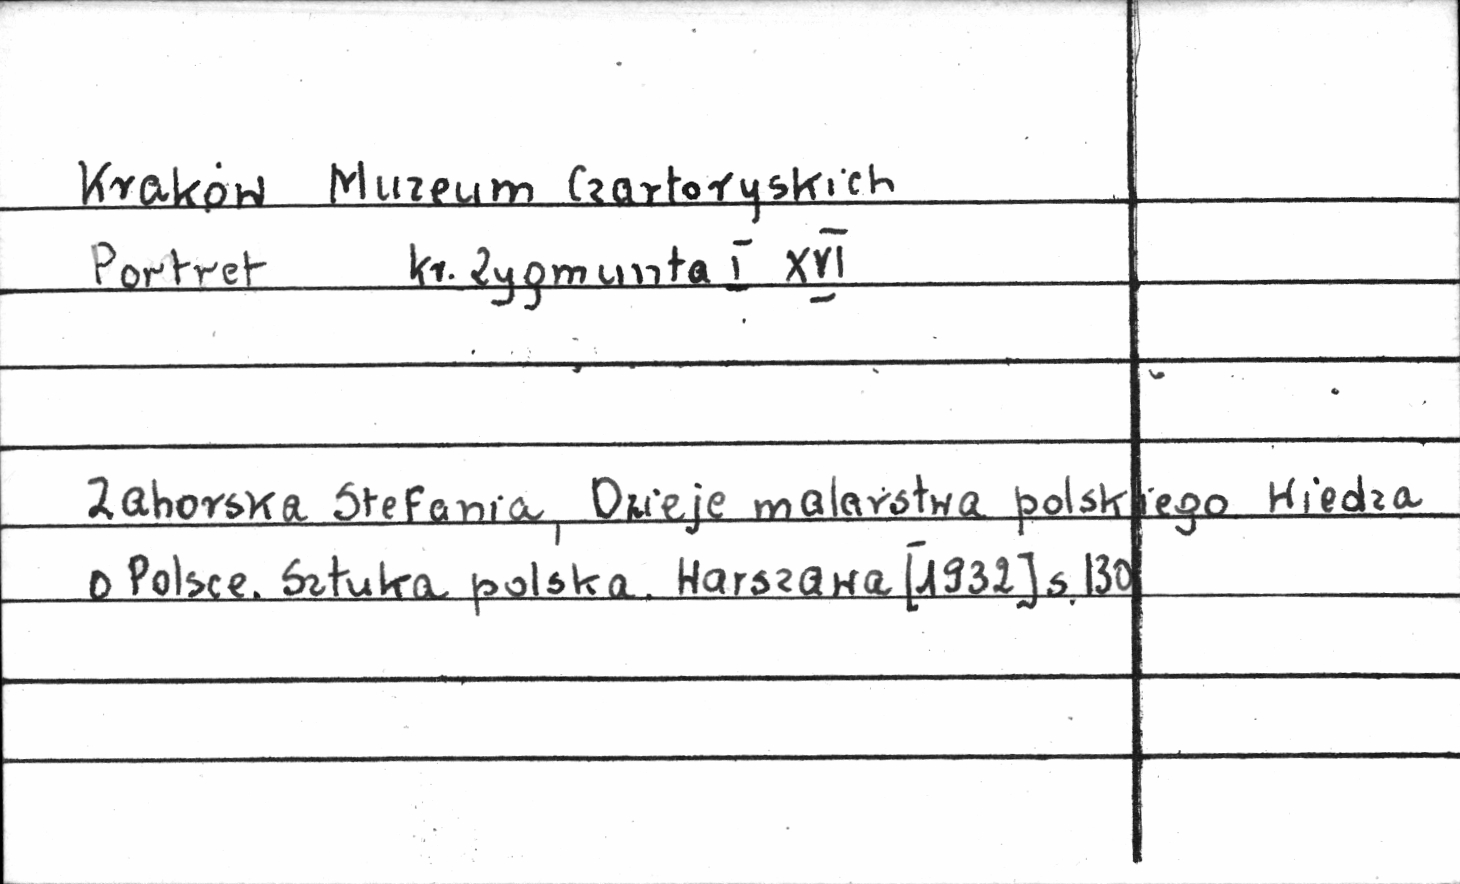 Kraków Muzeum Czartoryskich
Portret kr. Zygmunta I XVI
Zahorska Stefania, Dzieje malarstwa polskiego Wiedza
o Polsce. Sztuka polska. Warszawa [1932] s. 130